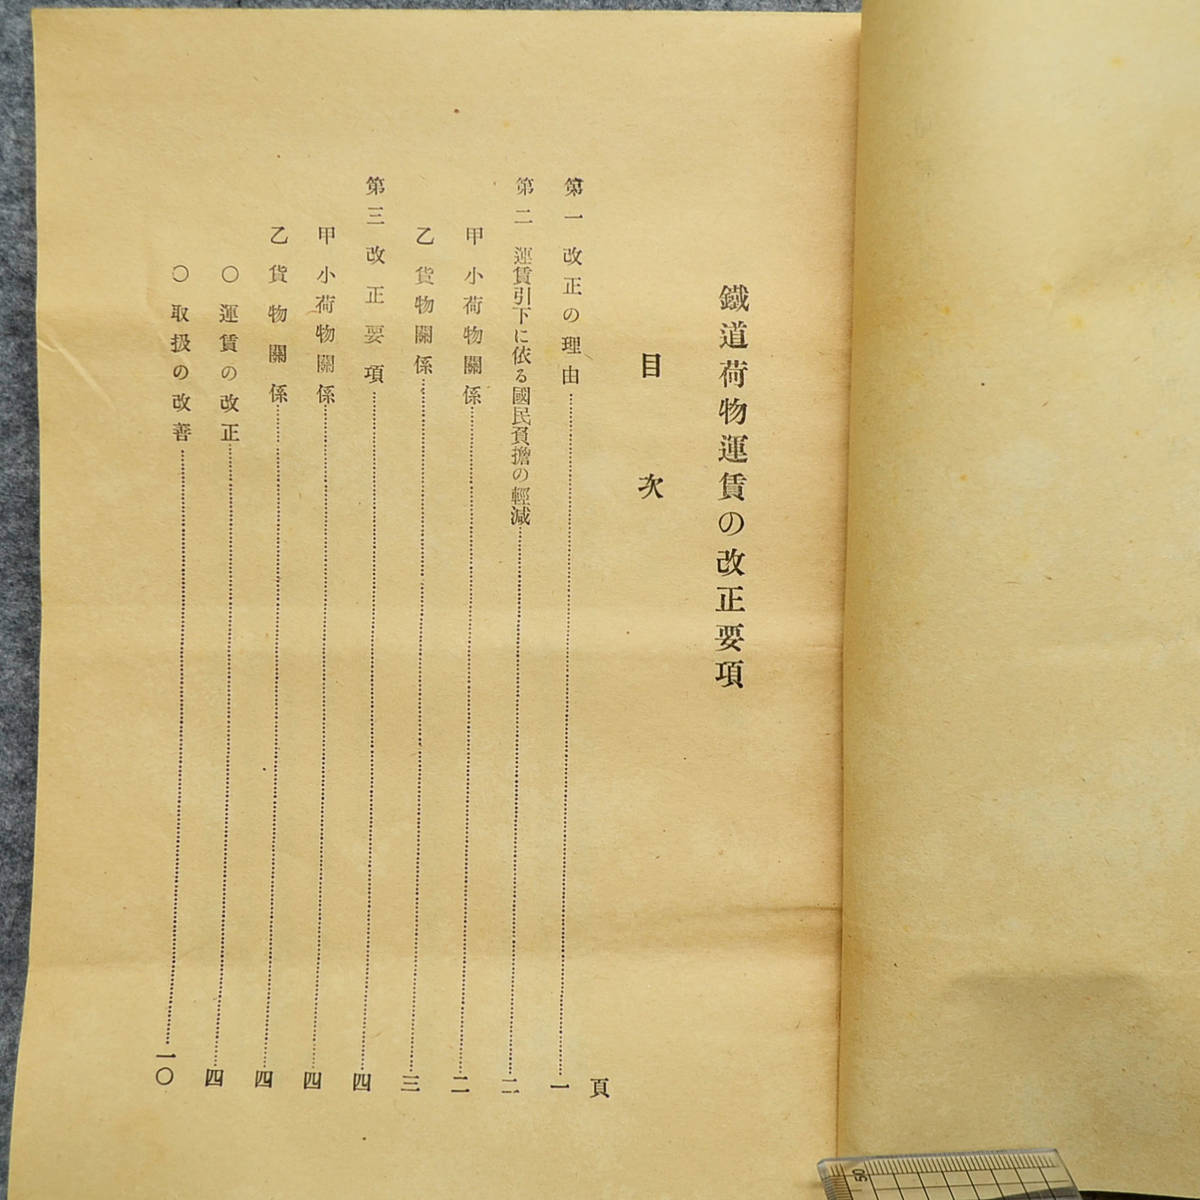 鐵道荷物運賃の改正要項
目次
頁
第一 改正の理由……一
第二 運賃引下に依る國民負擔の輕減……二
甲 小荷物關係……二
乙 貨物關係……三
第三 改正要項……四
甲 小荷物關係……四
乙 貨物關係……四
○運賃の改正……四
○取扱の改善……一〇
50